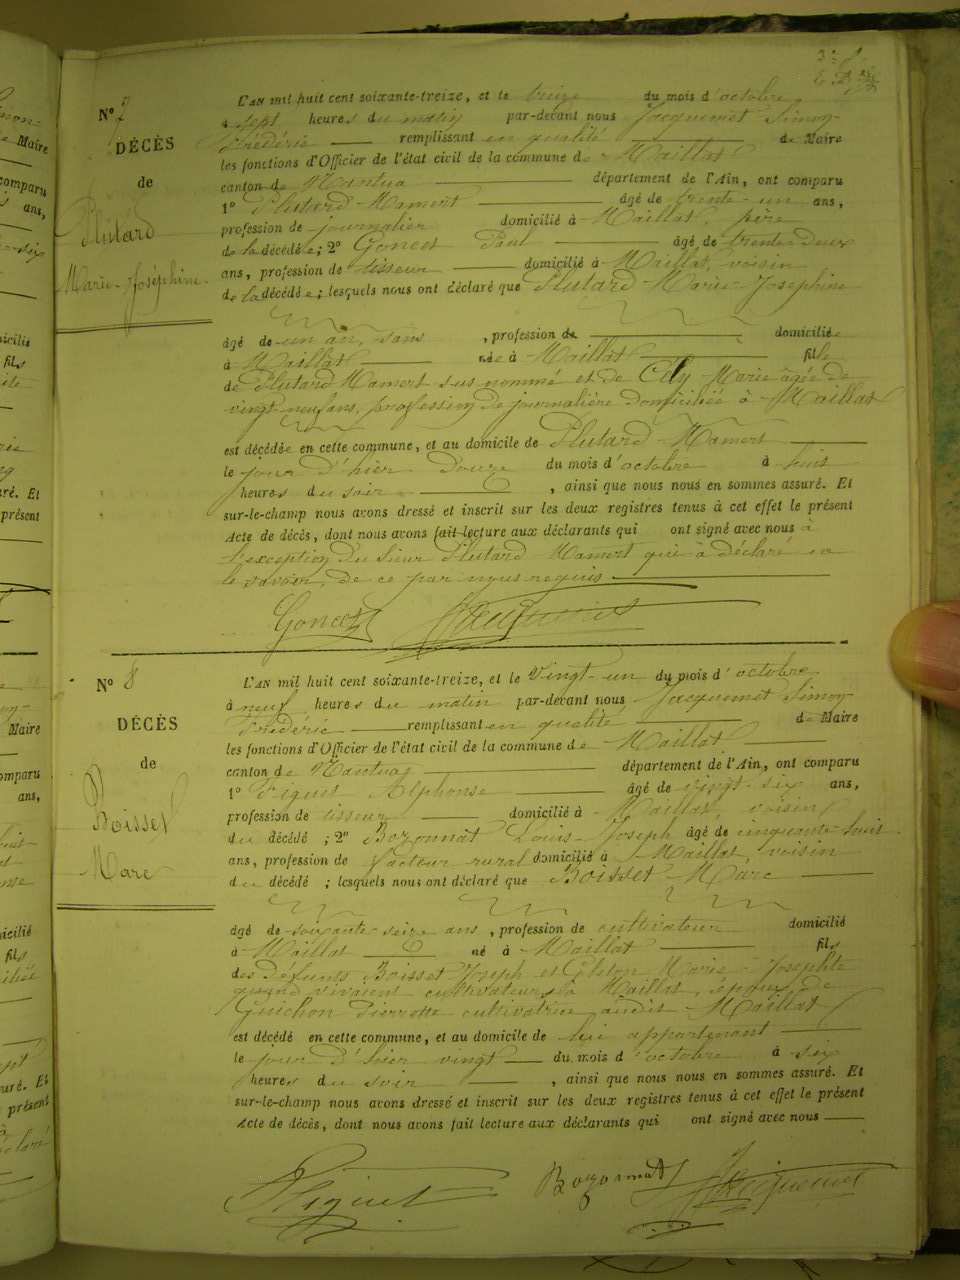 N° 7
DÉCÈS
de
Plutard
Marie-Joséphine
L'AN mil huit cent soixante-treize, et le treize du mois d'octobre
à sept heures du matin par-devant nous Jacquemet Simon-
Frédéric remplissant en qualité de Maire
les fonctions d'Officier de l'état civil de la commune de Maillat
canton de Nantua département de l'Ain, ont comparu
1° Plutard Mamert âgé de trente-un ans,
profession de journalier domicilié à Maillat, père
de la décédée; 2° Goncet Paul âgé de trente-deux
ans, profession de tisseur domicilié à Maillat, voisin
de la décédée; lesquels nous ont déclaré que Plutard Marie-Joséphine
âgé de un an, sans , profession de domiciliée
à Maillat née à Maillat fille
de Plutard Mamert sus-nommé et de Marie âgée de
vingt-neuf ans, profession de journalière domiciliée à Maillat
est décédée en cette commune, et au domicile de Plutard Mamert
le jour d'hier douze du mois d'octobre à huit
heures du soir , ainsi que nous nous en sommes assuré. Et
sur-le-champ nous avons dressé et inscrit sur les deux registres tenus à cet effet le présent
Acte de décès, dont nous avons fait lecture aux déclarants qui ont signé avec nous à
l'exception du sieur Plutard Mamert qui à déclaré ne
le savoir, de ce par nous requis.
Goncet Jacquemet
N° 8
DÉCÈS
de
Boisset
Marc
L'AN mil huit cent soixante-treize, et le vingt-un du mois d'octobre
à neuf heures du matin par-devant nous Jacquemet Simon-
Frédéric remplissant en qualité de Maire
les fonctions d'Officier de l'état civil de la commune de Maillat
canton de Nantua département de l'Ain, ont comparu
1° Piquet Alphonse âgé de vingt-six ans,
profession de tisseur domicilié à Maillat, voisin
du décédé; 2° Bozonnat Louis-Joseph âgé de cinquante-huit
ans, profession de facteur rural domicilié à Maillat, voisin
du décédé; lesquels nous ont déclaré que Boisset Marc
âgé de soixante-seize ans, profession de cultivateur domicilié
à Maillat né à Maillat fils
des défunts Boisset Joseph et Marie-Josephte
quand vivaient cultivateurs à Maillat, époux de
Guichon Pierrette cultivatrice audit Maillat
est décédé en cette commune, et au domicile de lui appartenant
le jour d'hier vingt du mois d'octobre à six
heures du soir , ainsi que nous nous en sommes assuré. Et
sur-le-champ nous avons dressé et inscrit sur les deux registres tenus à cet effet le présent
Acte de décès, dont nous avons fait lecture aux déclarants qui ont signé avec nous
Piquet Bozonnat Jacquemet